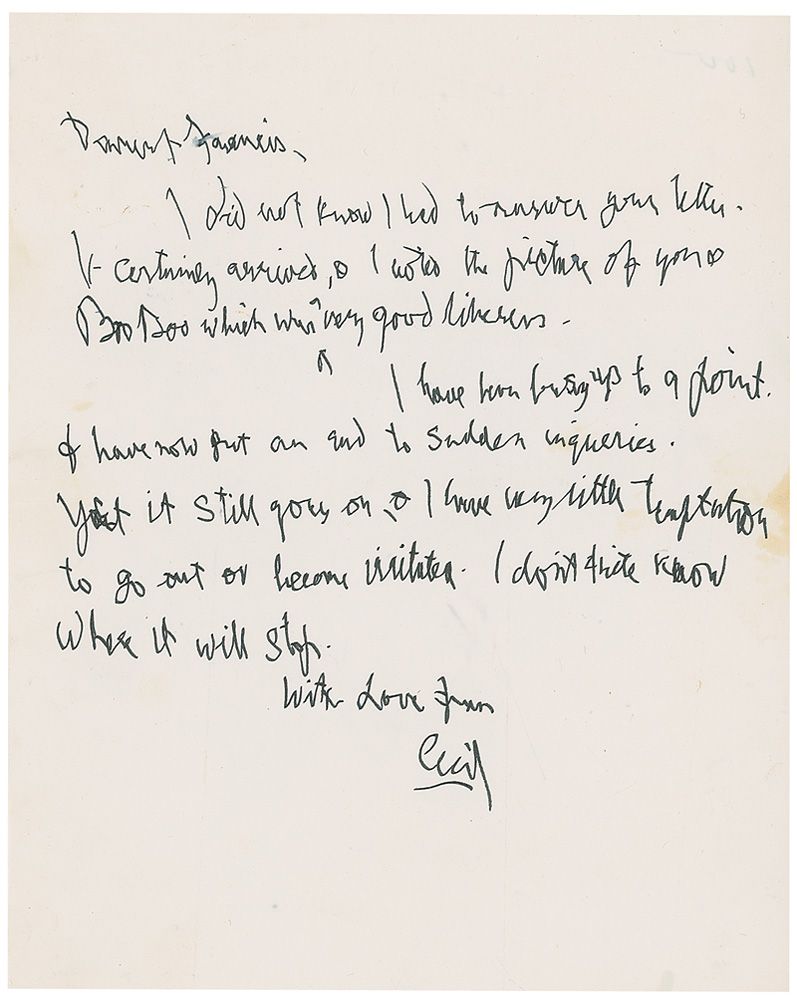 Dearest Francis,
I did not know I had to answer your letter.
It certainly arrived, & I the picture of you &
Boo Boo which very good likeness.
I have been busy up to a point.
I have now put an end to sudden inqueries.
Yet it still goes on, & I have very little temptation
to go out or become irritated. I don't know
where it will stop.
With Love from
Cecil